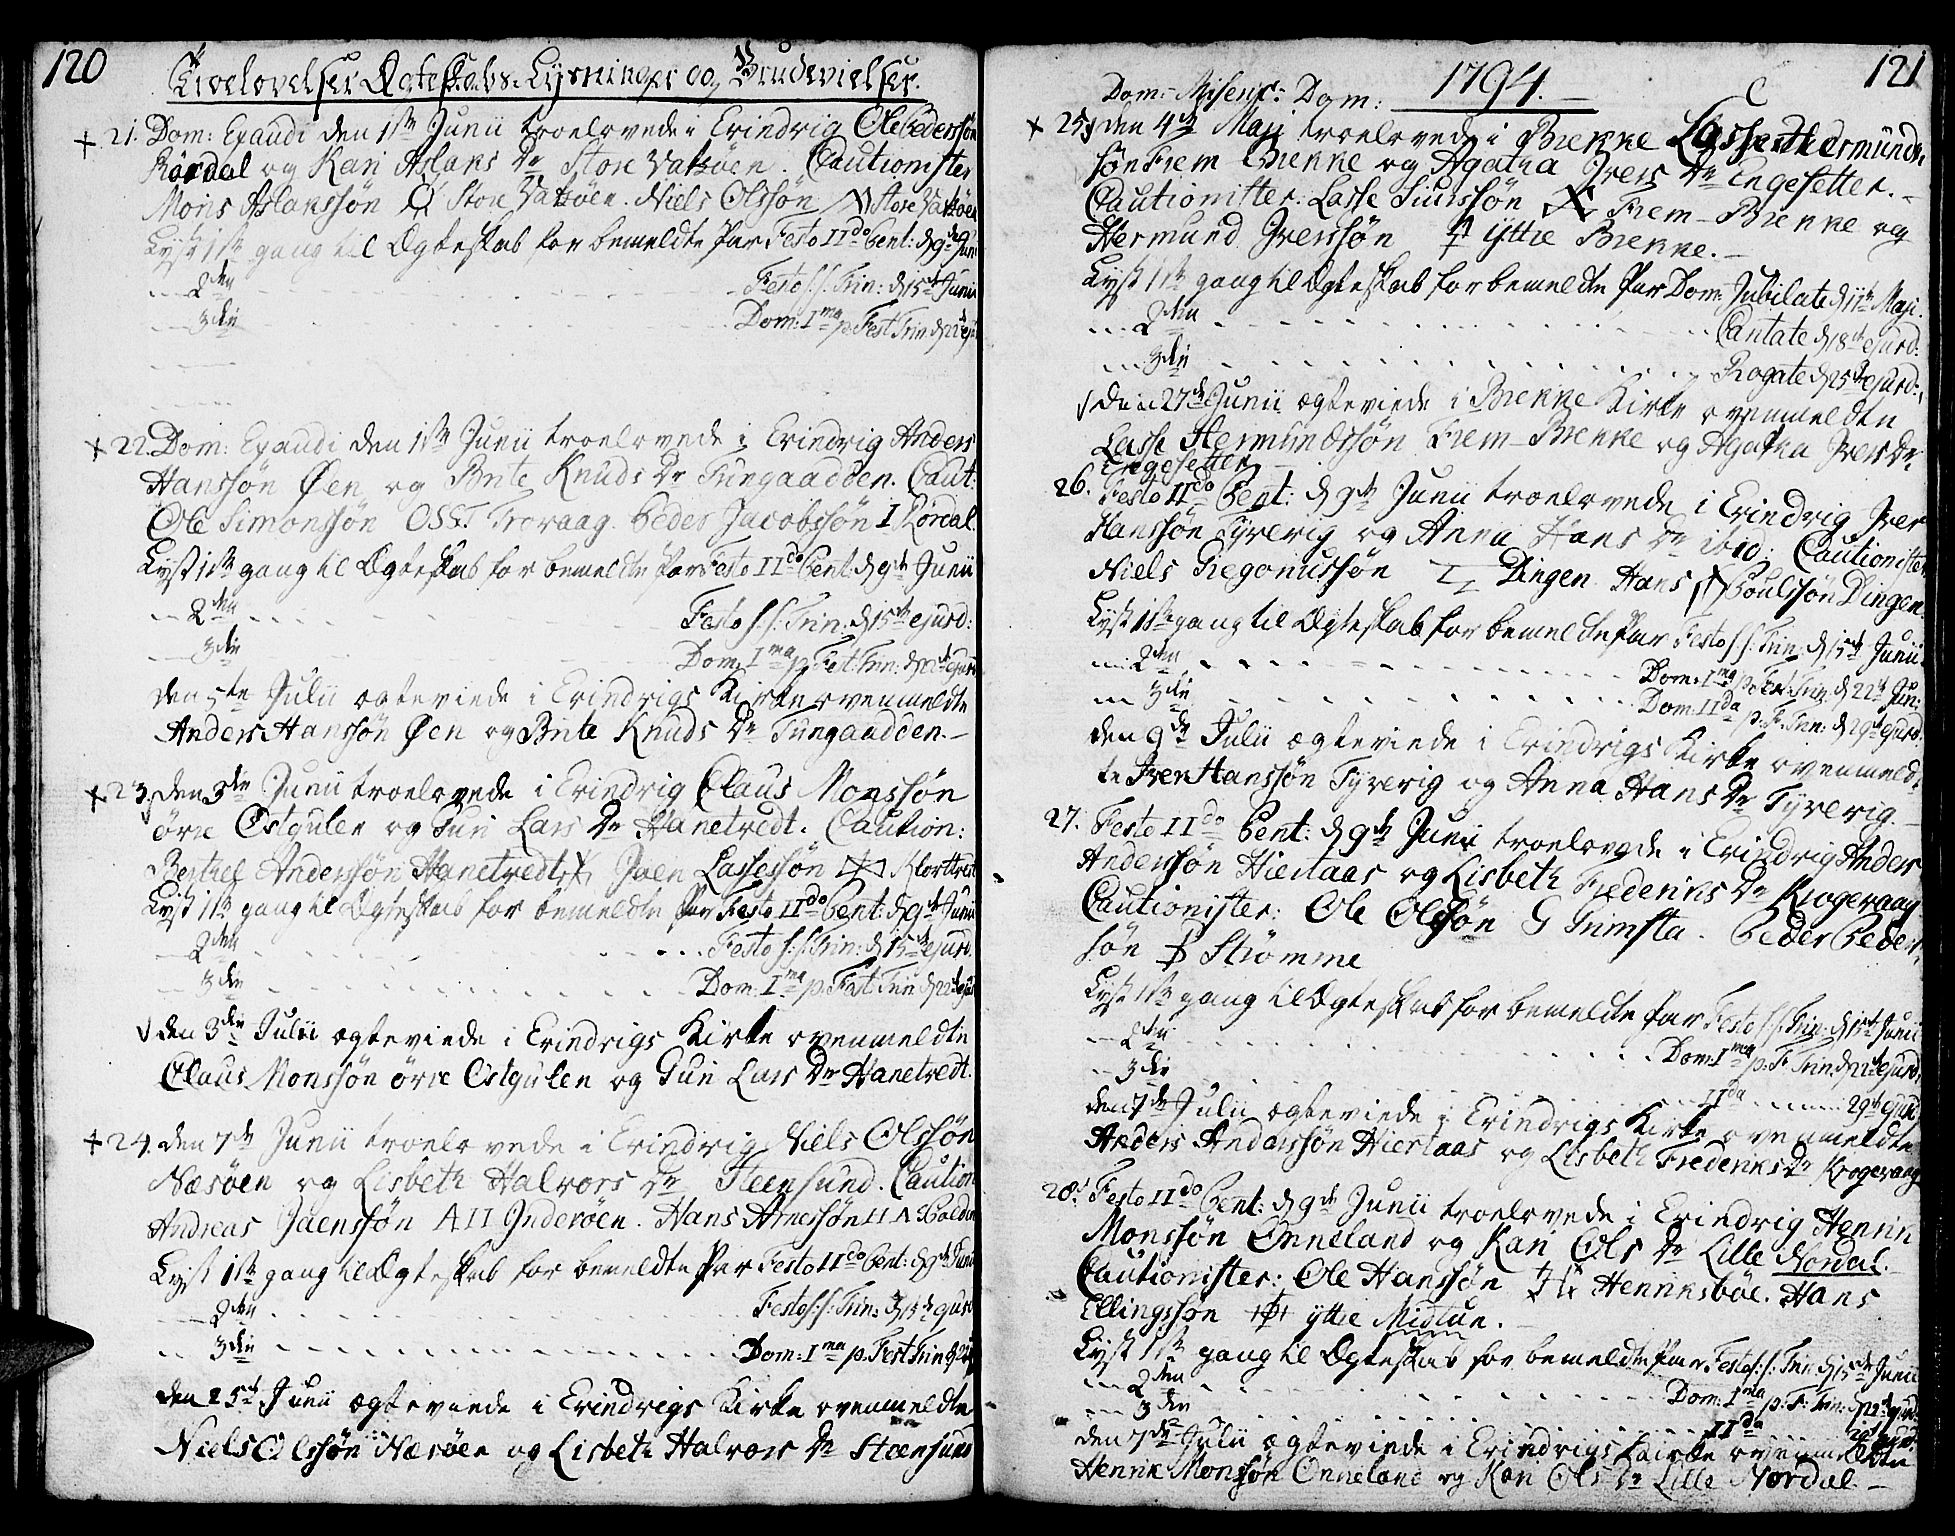 120
Troelovelser Ægteskabs-Lysninger og Brudevielser.
+ 21. Dom: Exaudi den 1ste Junii troelovede i Evindvig Ole Pederssøn
Rørdal og Kari Aslaks Dr Store Vatsøen. Cautionister
Mons Aslakssøn Store Vatsøen. Niels Olssøn Store Vatsøen
Lyst 1ste gang til Ægteskab for bemeldte Par Festo IIdo Pent: d. 9de Junii
--- 2den - - - Festo S: S: Trin: d. 15de Junii
--- 3die - - - Dom: Ima p. Fest. Trin. d. 22de ej:
+ 22. Dom: Exaudi den 1ste Junii troelovede i Evindvig Anders
Hanssøn Øen og Brite Knuds Dr Tungaadden. Caut:
Ole Simonssøn OSS. Troraag. Peder Jacobssøn I Rørdal
Lyst 1ste gang til Ægteskab for bemeldte Par Festo IIdo Pent: d. 9de Junii
--- 2den - - - Festo S: S: Trin: d. 15de ejusd:
--- 3die - - - Dom: Ima p. Fest: Trin: d. 22de ejusd:
den 5te Julii ægteviede i Eindvigs Kirke ovenmeldte
Anders Hanssøn Øen og Brite Knuds Dr Tungaadden. -
+ 23. den 3die Junii troelovede i Evindvig Claus Monssøn
øvre Østgulen og Guri Lars Dr Hanetvedt. Caution:
Berthel Anderssøn Hanetvedt Joen Lassessøn Klorttvedt
Lyst 1ste gang til Ægteskab for bemeldte Par Festo IIdo Pent: d. 9de Junii
--- 2den - - - Festo S: S: Trin: d. 15de ejusd.
--- 3die - - - Dom: Ima p. Fest Trin d. 22de ejus
den 3die Julii ægteviede i Evindvigs Kirke ovenmeldte
Claus Monssøn øvre Østgulen og Guri Lars Dr Hanetvedt.
+ 24. den 7de Junii troelovede i Evindvig Niels Olssøn
Næsøen og Lisbeth Halvors Dr Steensund. Caution
Andreas Joenssøn AII Inderøen. Hans Arnessøn
Lyst 1ste gang til Ægteskab for bemeldte Par Festo IIdo Pent: d. 9de Junii
--- 2den - - - Festo S: S: Trin: d. 15de ejusd
--- 3die - - - Dom: Ima p. Fest Trin d. 22de
den 25de Junii ægteviede i Evindvigs Kirke ovenmeldte
Niels Olssøn Næsøen og Lisbeth Halvors Dr Steensund
1794.
121
Dom:- Misericº Dom:
+ 25. den 4de Maji troelovede i Brekke Lasse Hermunds
søn Frem Brekke og Agatha Ivers Dr Engesetter. -
Cautionister: Lasse Siurssøn Frem-Brekke og
Hermund Iverssøn yttre Brekke. -
Lyst 1ste gang til Ægteskab for bemeldte Par Dom: Jubilate d. 11te Maji.
--- 2den - - - Cantate d. 18de ejusd:
--- 3die - - - Rogate d. 25de ejusd:
den 27de Junii ægteviede i Brekke Kirke ovenmeldte
Lasse Hermundssøn Frem-Brekke og Agatha Ivers Dr
Engesetter
26. Festo IIdo Pent: d. 9de Junii troelovede i Evindvig Iver
Hanssøn Tyvevig og Anna Hans Dr ibid: Cautionister
Niels Gregoriussøn Dingen Hans Poulssøn Dingen
Lyst 1ste gang til Ægteskab for bemeldte Par Festo S: S: Trin: d. 15de Junii
--- 2den - - - Dom: Ima p. Fest: Trin: d. 22de Jun:
--- 3die - - - Dom: IIda p. F. Trin: d. 29de ejusd.
den 9de Julii ægteviede i Evindvigs Kirke ovenmeld-
te Iver Hanssøn Tyvevig og Anna Hans Dr Tyvevig. -
27. Festo IIdo Pent: d. 9de Junii troelovede i Evindvig Anders
Anderssøn Hiertaas og Lisbeth Frederiks Dr Krogevaag
Cautionister: Ole Olssøn G Grimsta. Peder Peders-
søn Strømme
Lyst 1ste gang til Ægteskab for bemeldte Par Festo S: S: Trin: d. 15de Junii
--- 2den - - - Dom: Ima p. F. Trin: d. 22de ejusd.
--- 3die - - - IIda - - - 29de ejusd
den 7de Julii ægteviede i Evindvigs Kirke ovenmeldte
Anders Anderssøn Hiertaas og Lisbeth Frederiks Dr Krogevaag
28. Festo IIdo Pent: d. 9de Junii troelovede i Evindvig Henrik
Monssøn Onneland og Kari Ols Dr Lille Nordal. -
Cautionister: Ole Hanssøn Henriksbøe. Hans
Ellingssøn yttre Midtun. -
Lyst 1ste gang til Ægteskab for bemeldte Par Festo S: S: Trin: d. 15de Junii
--- 2den - - - Dom: Ima p: F: Trin: d. 22de ejusd
--- 3die - - - IIda - - - 29de ejusd:
den 7de Julii ægteviede i Evindvigs Kirke ovenmeldte
Henrik Monssøn Onneland og Kari Ols Dr Lille Nordal. -